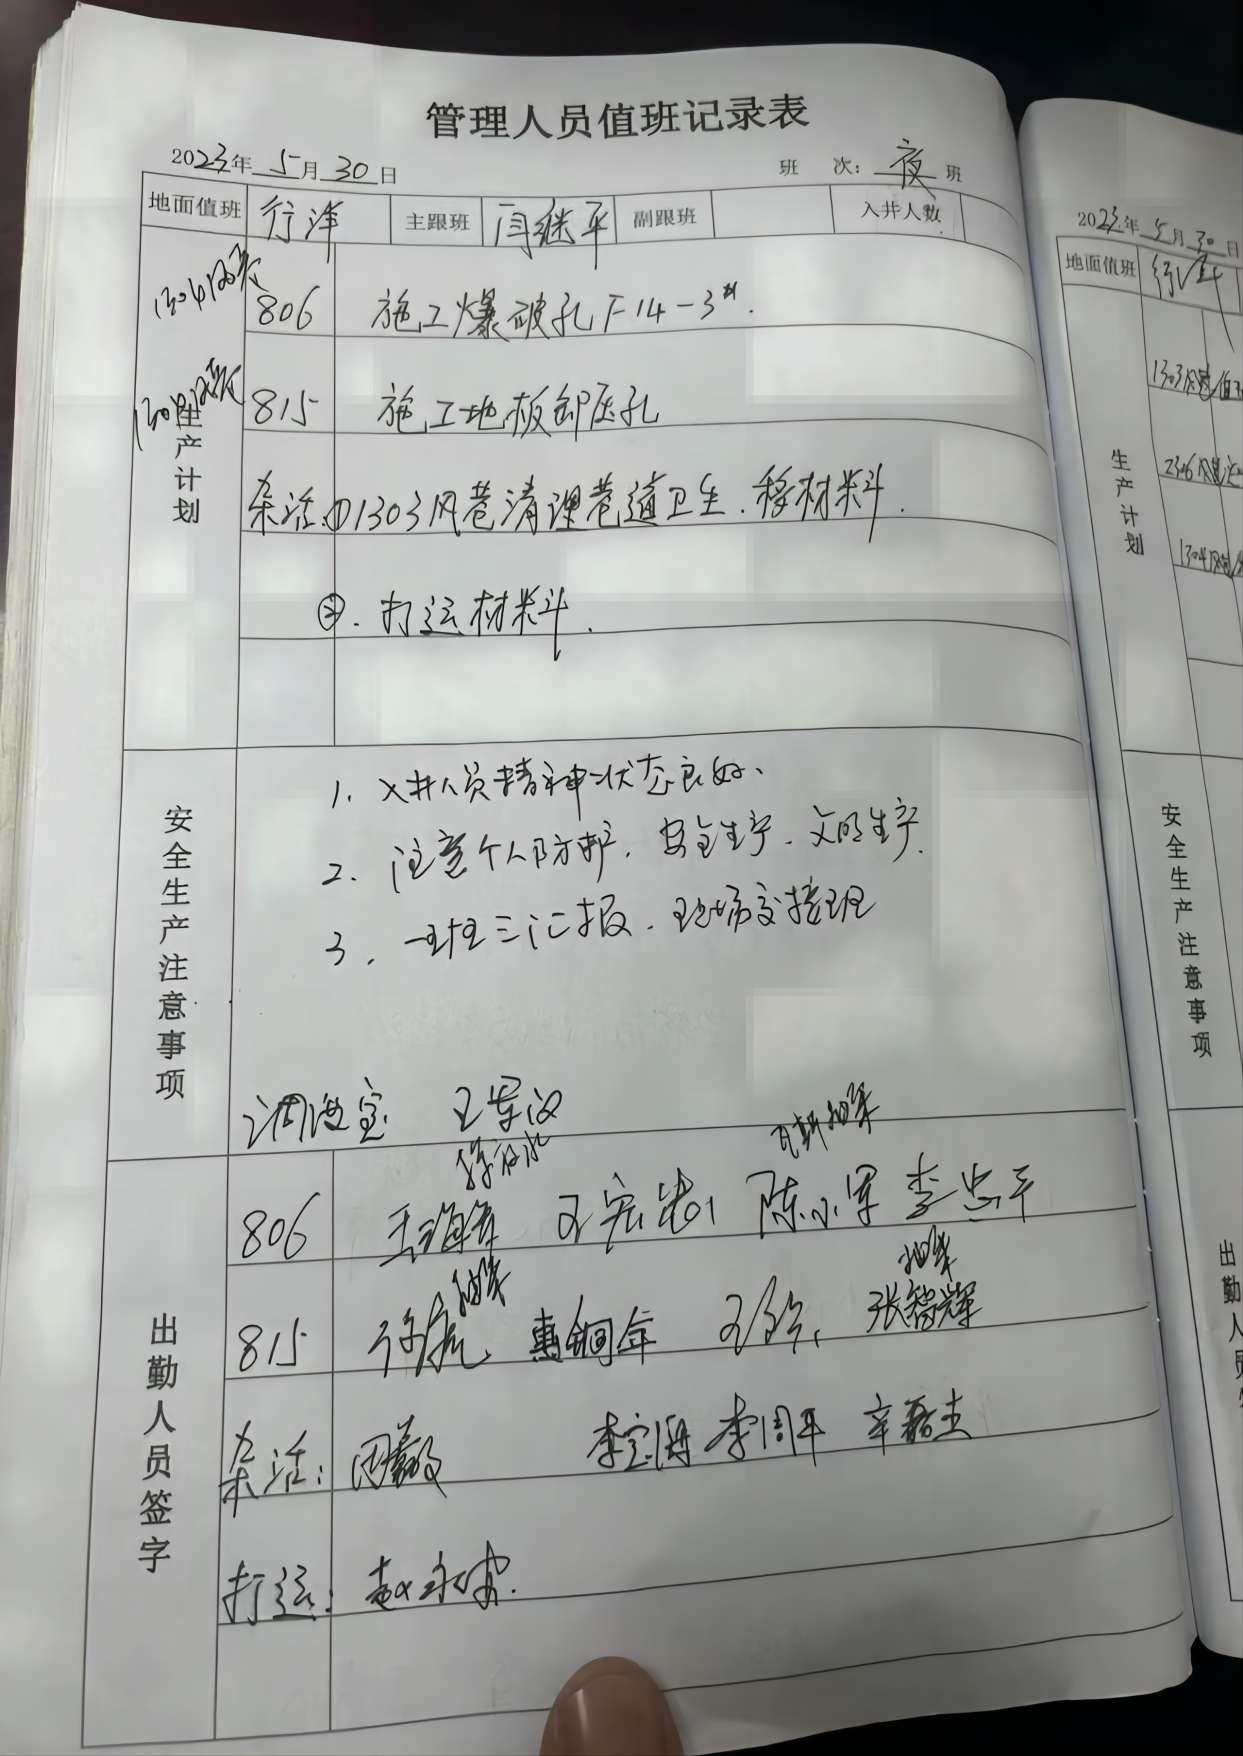 管理人员值班记录表
2023年 5月30日 班 次：夜班
地面值班 行洋 主跟班 闫继平 副跟班 入井人数
1304风巷 806 施工爆破孔F14-3#.
815 施工地板卸压孔
生产计划
杂活.①1303风巷清理巷道卫生.移材料斗.
②.打运材料斗.
安全生产注意事项
1、入井人员精神状态良好、
2、注意个人防护.安全生产.文明生产.
3、一班三汇报.现场交接班
调度室 王军
出勤人员签字
806 王海 王宏 陈小军 李忠平
815 张智辉
杂活: 田毅 李周平
打运: 赵永
2023年5月30日
地面值班
1303风巷
2306风巷
1304风巷
生产计划
安全生产注意事项
出勤人员